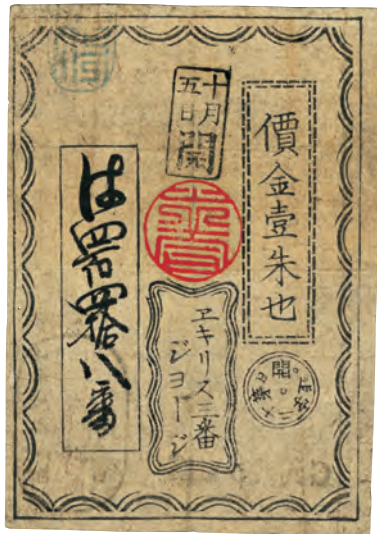 價金壹朱也
十月
五日
開
ヱキリス三番
ジョージ
は四百四拾八番